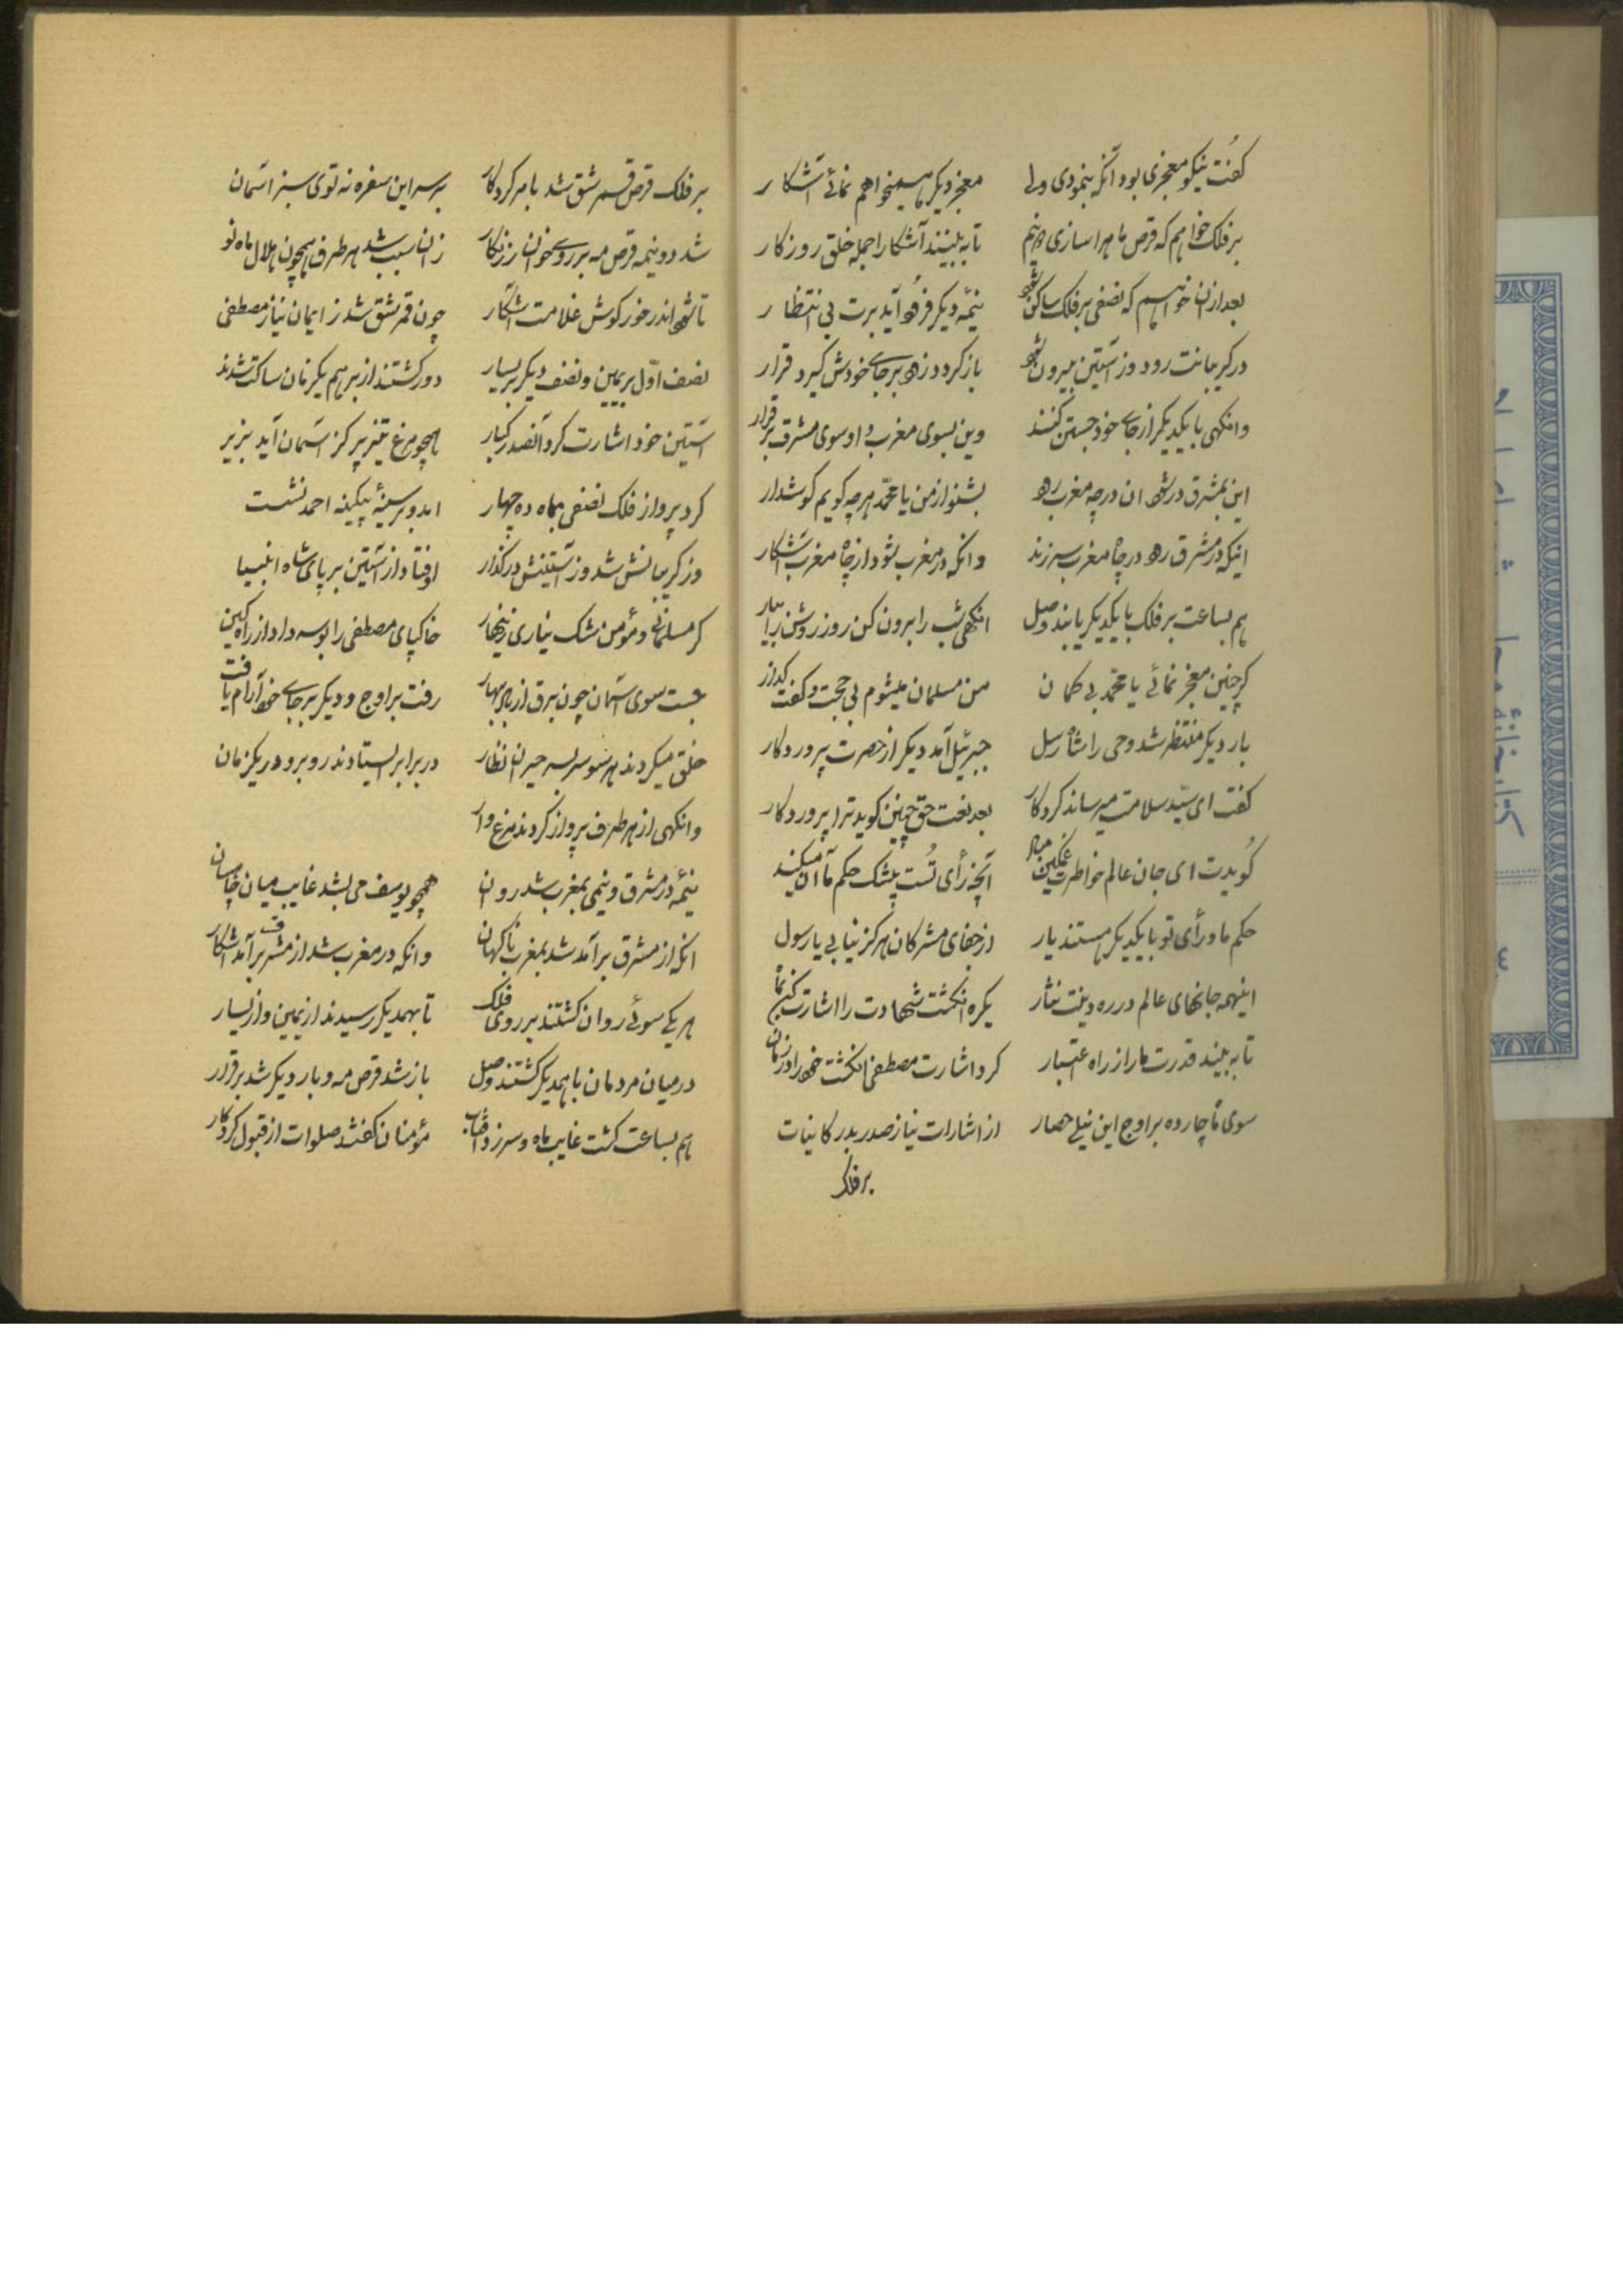 کفت نیکو معجزی بود آنکه بنمودی ولی معجز دیکر همیخواهم نمائے آشکار
بر فلک خواهم که قرص ماهرا سازی دونیم تا به بینند آشکارا جمله خلق روزکار
بعد ازان خواهم که نصفی بر فلک ساکن شود نیمهٔ دیکر فرود آید برت بی انتظار
در کریبانت رود وز آستین بیرون شود باز کردد زود بر جاے خودش کیرد قرار
وانکهی با یکدیکر از جاے خود جستن کنند وین بسوی مغرب و او سوی مشرق برقرار
این بمشرق در شود ان در چه مغرب رود بشنو از من یا محمّد هرچه کویم کوشدار
اینکه در مشرق رود در چاه مغرب سر زند وانکه در مغرب شود از چاه مغرب آشکار
هم بساعت بر فلک با یکدیکر یابند وصل انکهی شب را برون کن روز روشن را بیار
کر چنین معجز نمائے یا محمّد بی کمان من مسلمان میشوم بی حجت و کفت کذار
بار دیکر منتظر شد وحی را شاه رسل جبرئیل آمد دیکر از حضرت پروردکار
کفت ای سیّد سلامت میرساند کردکار بعد نعت حق چنین کوید ترا پروردکار
کویدت ای جان عالم خواطرت غمکین مدار آنچه رأی تُست بیشک حکم ما آن میکند
حکم ما و رأی تو با یکدیکر هستند یار از جفای مشرکان هرکز نیابی یا رسول
اینهمه جانهای عالم در ره دینت نثار یکره انکشت شهادت را اشارت کن بماه
تا به بیند قدرت ما را از راه اعتبار کرد اشارت مصطفی انکشت خود را در زمان
سوی ماه چارده بر اوج این نیلے حصار از اشارات نیاز صدر بدر کاینات
بر فلک
بر فلک قرص قمر شق شد بامر کردکار بر سر این سفره نه توی سبز اسمان
شد دو نیمه قرص مه بر روے خوان زرنکار زان سبب شد هر طرف همچون هلال ماه نو
تا شود اندر خور کوش غلامت آشکار چون قمر شق شد ز ایمان نیاز مصطفی
نصف اوّل بر یمین و نصف دیکر بر یسار دور کشتند از بر هم یکزمان ساکت شدند
آستین خود اشارت کرد آنصدر کبار همچو مرغ تیز پر کز اسمان آید بزیر
کرد پرواز از فلک نصفی بماه ده چهار امد و بر سینهٔ بیکینه احمد نشست
وز کریبانش شد وز آستینش در کذار اوفتاد از آستین بر پای شاه انبیا
کر مسلمانے و مؤمن شک نیاری زینهار خاکپای مصطفی را بوسه داد از راه کین
جست سوی آسمان چون برق از ابر بهار رفت بر اوج و دیکر بر جاے خود آرام یافت
خلق میکردند هر سو سر بسر حیران نظار در برابر ایستادند روبرو در یکزمان
وانکهی از هر طرف پرواز کردند مرغ وار
نیمهٔ در مشرق و نیمی بمغرب شد روان همچو یوسف می بشد غایب میان چاهسان
انکه از مشرق برآمد شد بمغرب ناکهان وانکه در مغرب شد از مشرق برآمد آشکار
هر یکے سوئے روان کشتند بر روی فلک تا بهمدیکر رسیدند از یمین و از یسار
در میان مردمان با همدیکر کشتند وصل باز شد قرص مه و بار دیکر شد برقرار
هم بساعت کشت غایب ماه و سر زد آفتاب مؤمنان کفتند صلوات از قبول کردکار